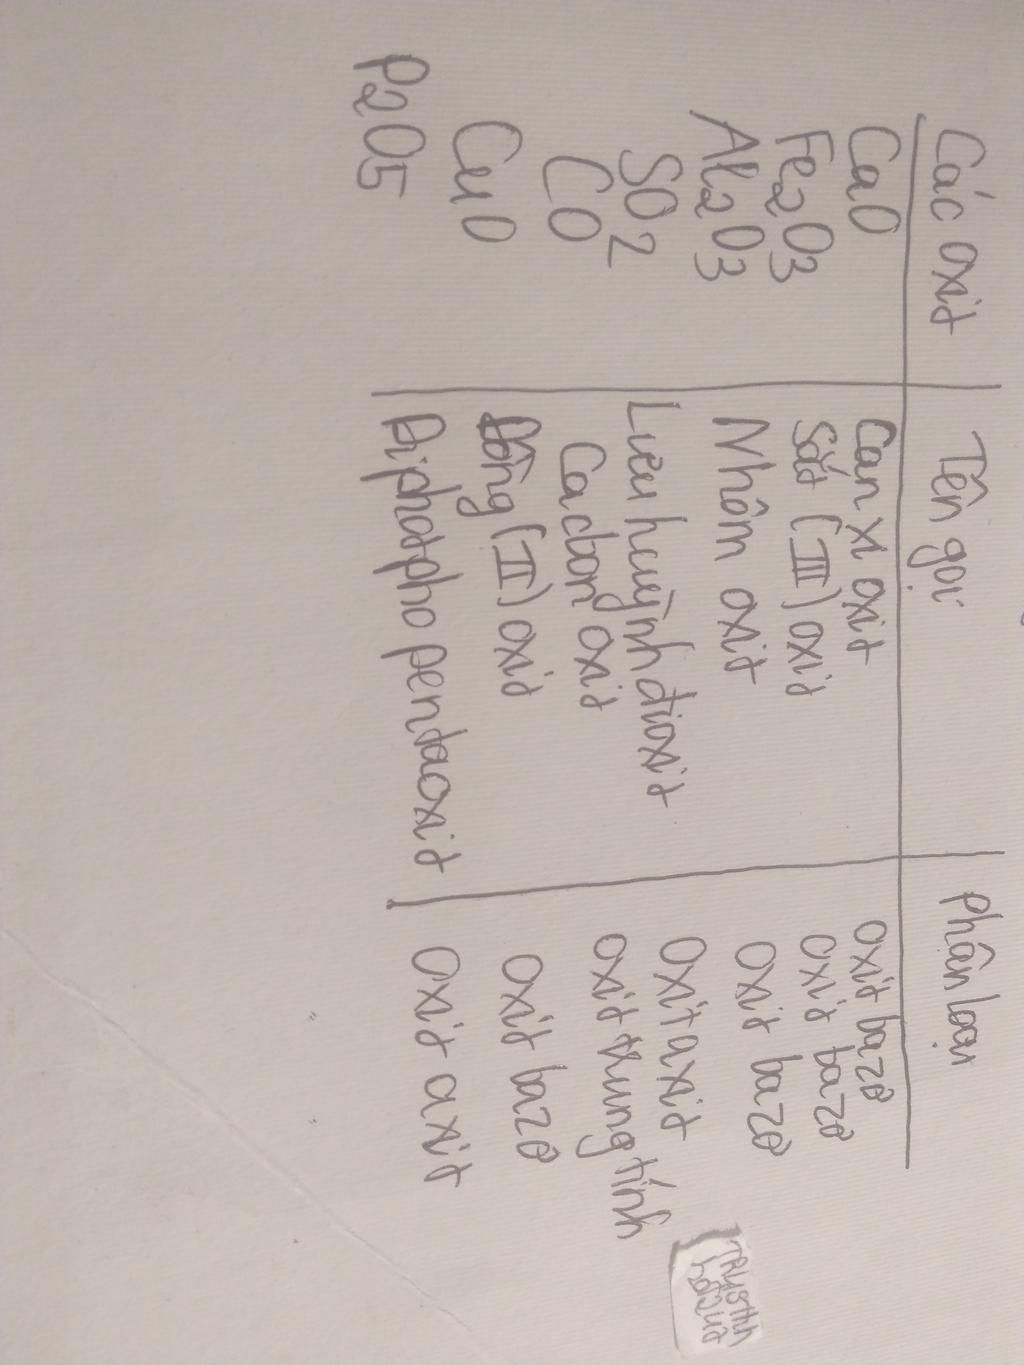 Các oxit Tên gọi Phân loại
CaO Can xi oxit oxit bazơ
Fe2O3 Sắt (III) oxit oxit bazơ
Al2O3 Nhôm oxit oxit bazơ
SO2 Lưu huỳnh đioxit oxit axit
CO Cacbon oxit oxit trung tính
CuO Đồng (II) oxit oxit bazơ
P2O5 Điphotpho pentaoxit oxit axit